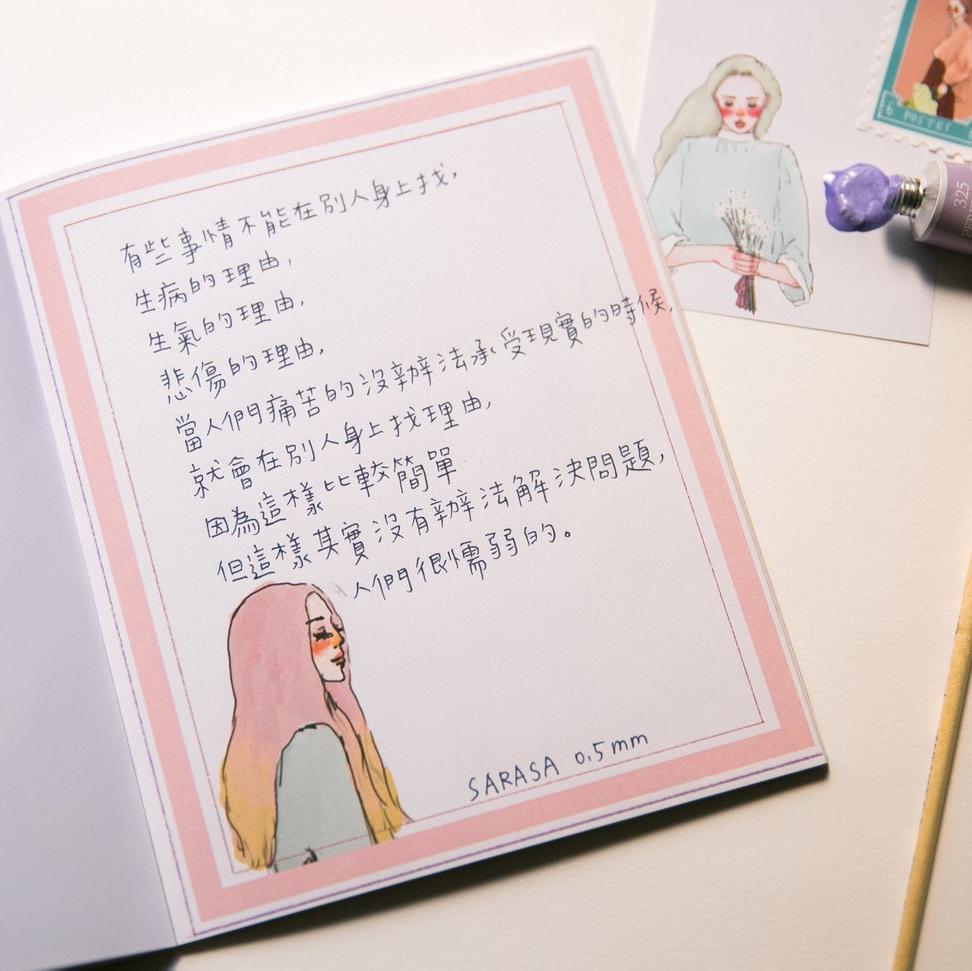 有些事情不能在別人身上找，
生病的理由，
生氣的理由，
悲傷的理由，
當人們痛苦的沒辦法承受現實的時候，
就會在別人身上找理由，
因為這樣比較簡單
但這樣其實沒有辦法解決問題，
人們很懦弱的。
SARASA 0.5mm
6 POSTES
325